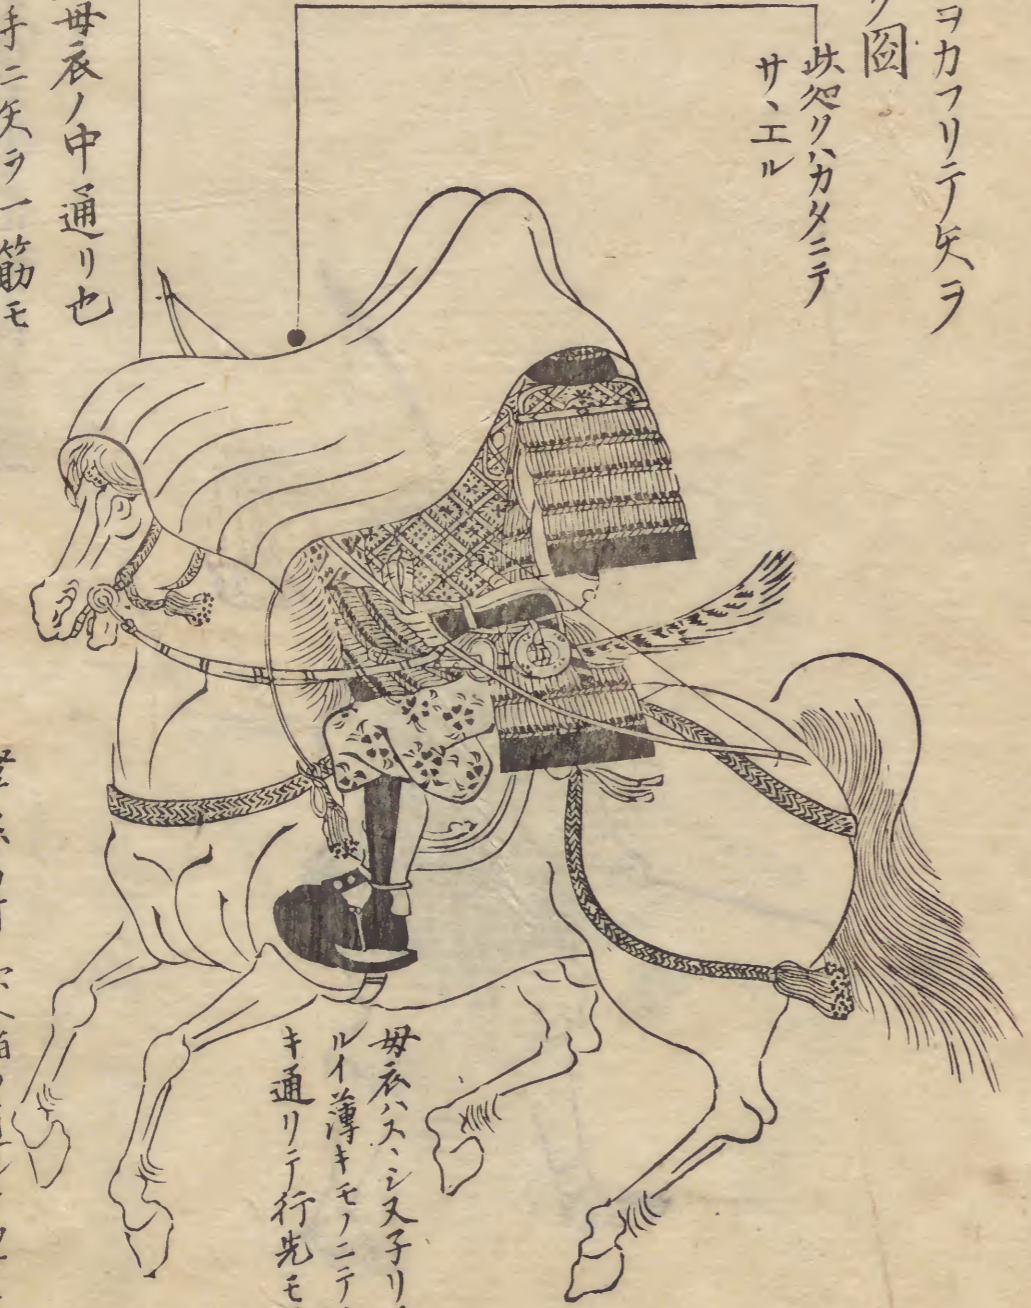 ヲカフリテ矢ヲ
ノ圖
此処クハカタニテ
サヽエル
母衣ノ中通リ也
手ニ矢ヲ一筋モ
母衣ハスヽシ又子リ
ルイ薄キモノニテ
キ通リテ行先モ